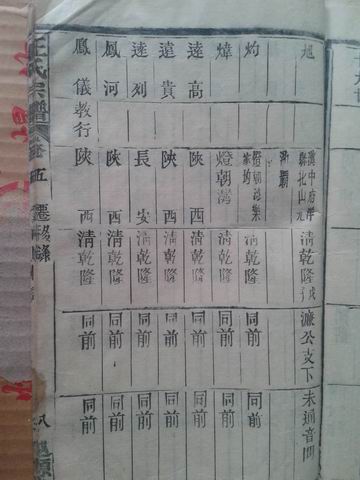 旭 漢中府 縣北山 清乾隆 濂公支下 未通音問
灼 同前 同前
煒 燈朝 清乾隆 同前 同前
遠高 陝西 清乾隆 同前 同前
遠貴 陝西 清乾隆 同前 同前
遠列 長安 清乾隆 同前 同前
鳳河 陝西 清乾隆 同前 同前
鳳儀教行 陝西 清乾隆 同前 同前
王氏宗譜 卷五 遷移錄 八